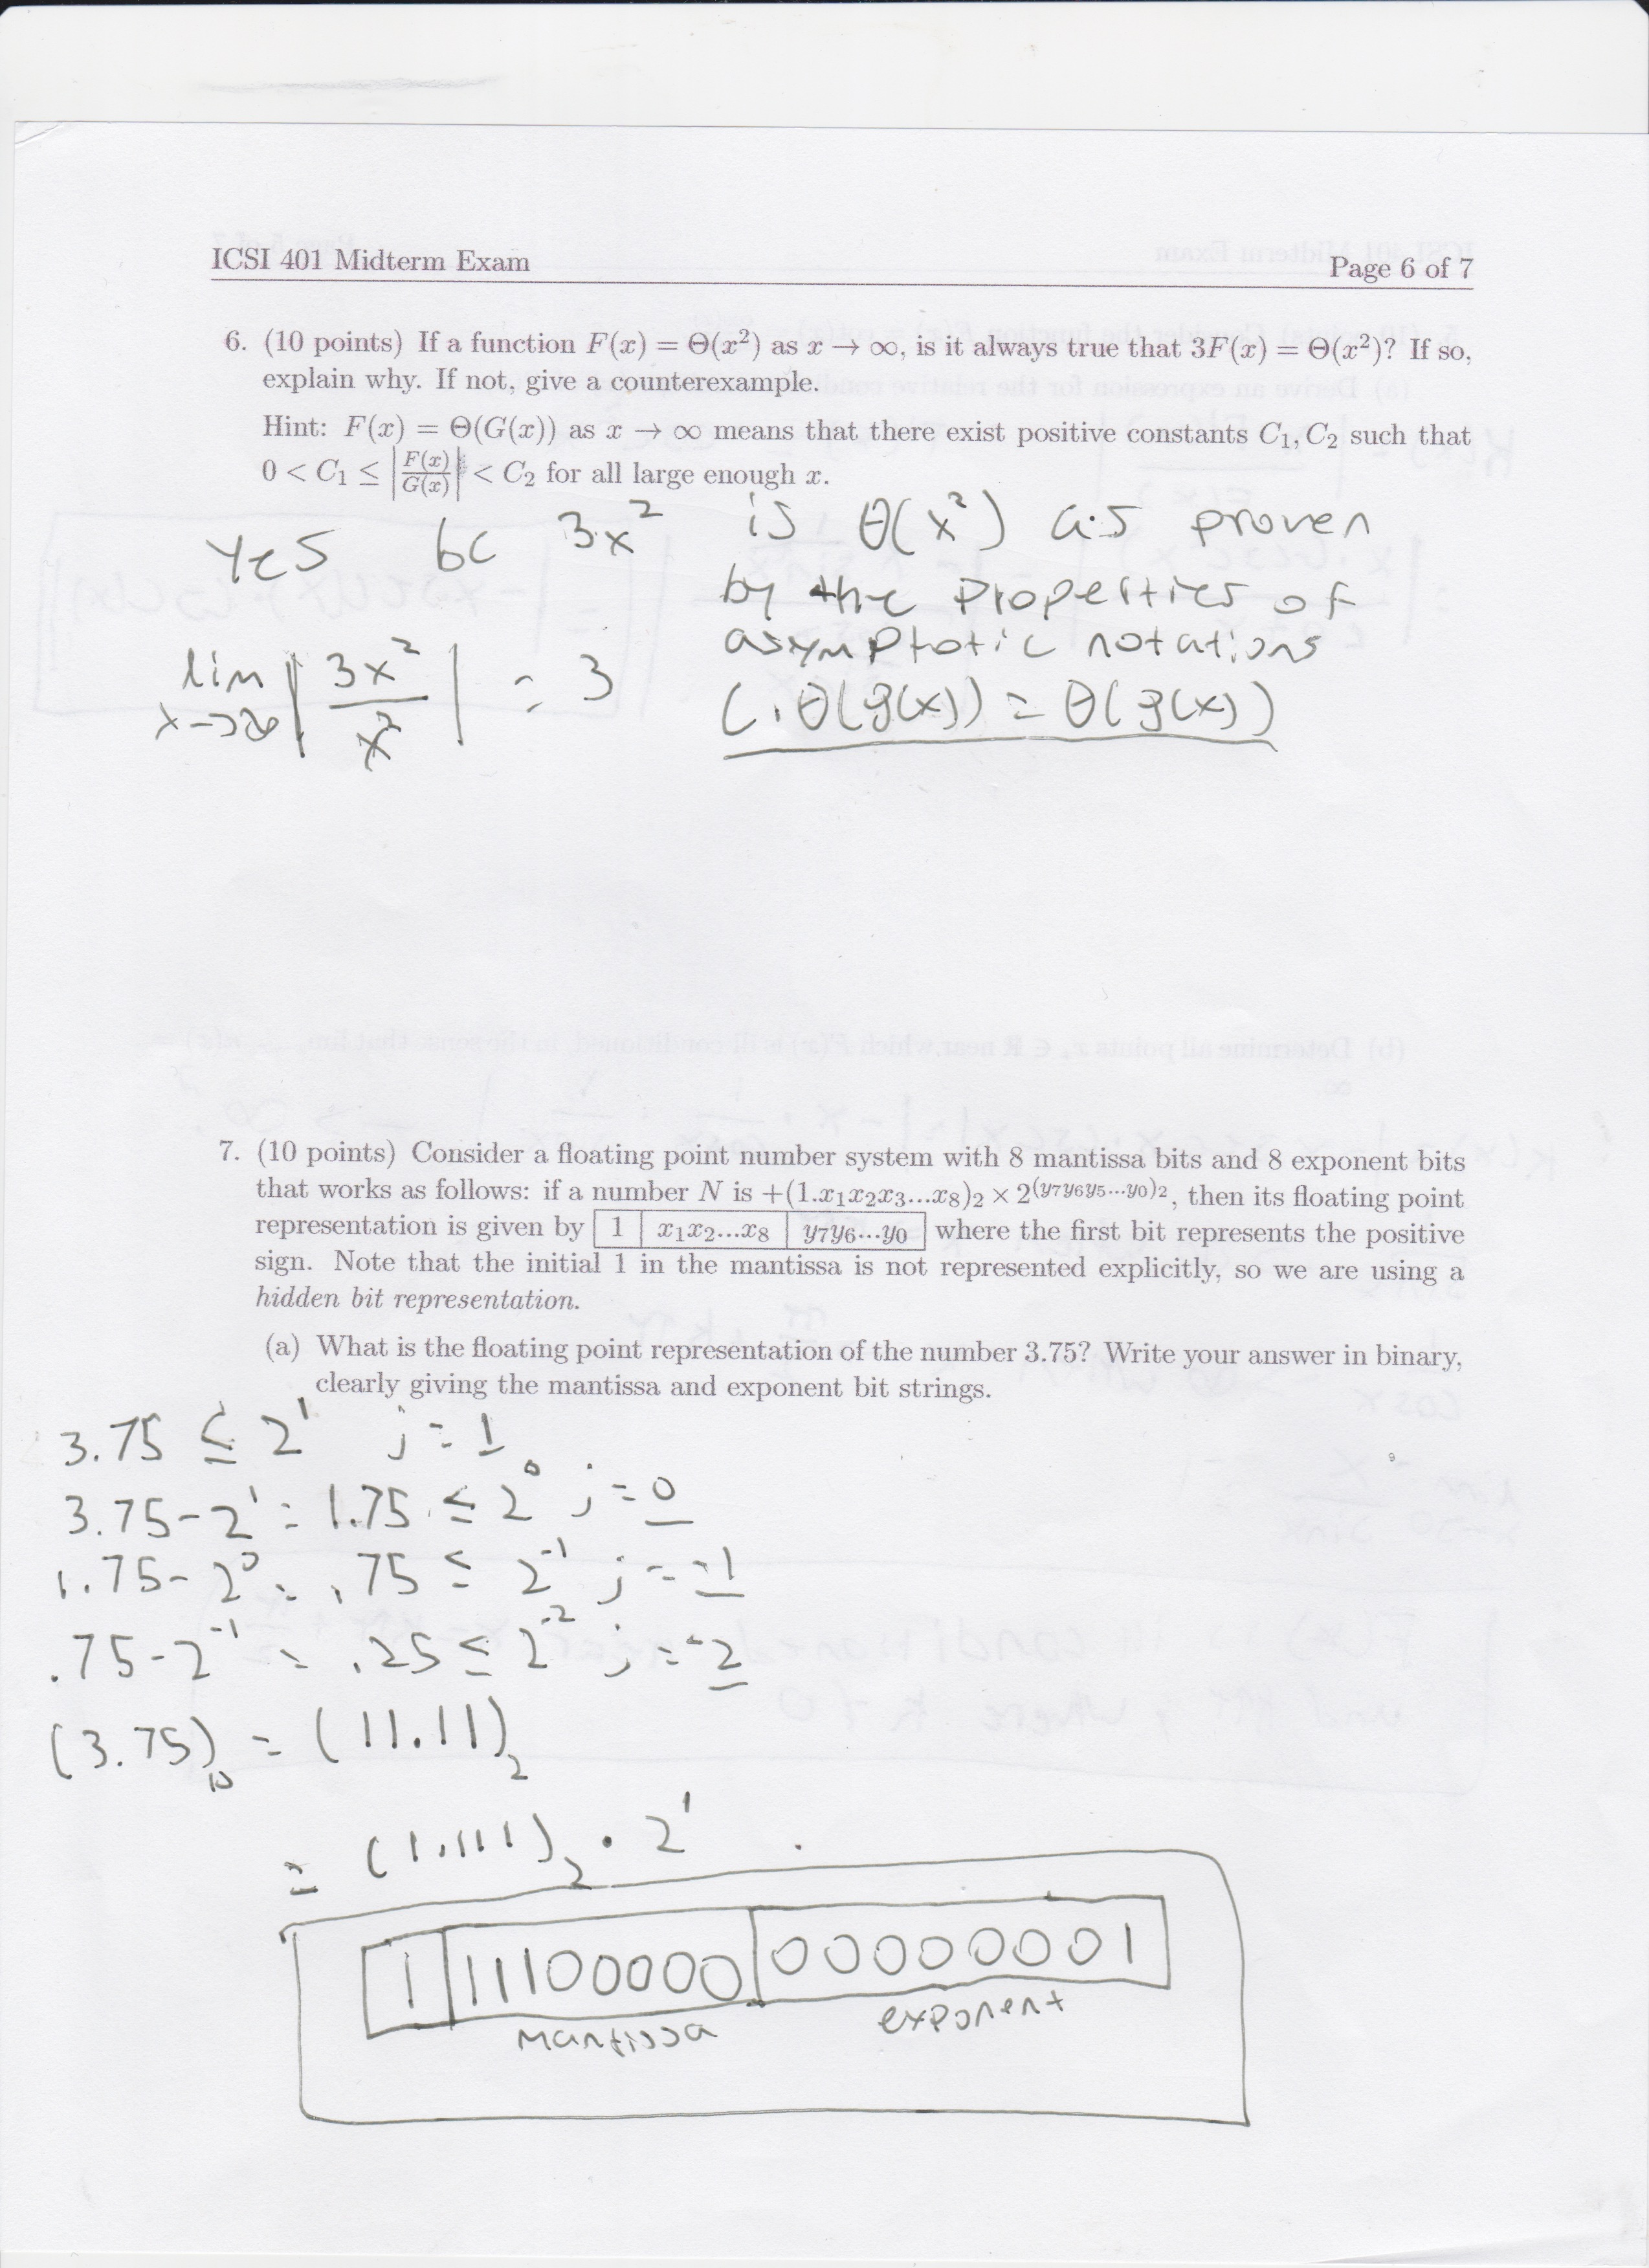 ICSI 401 Midterm Exam Page 6 of 7
6. (10 points) If a function F(x) = Θ(x²) as x → ∞, is it always true that 3F(x) = Θ(x²)? If so,
explain why. If not, give a counterexample.
Hint: F(x) = Θ(G(x)) as x → ∞ means that there exist positive constants C₁, C₂ such that
0 < C₁ ≤ |F(x)/G(x)| < C₂ for all large enough x.
Yes bc 3x² is θ(x²) as proven
by the properties of
asymptotic notations
lim x→∞ |3x²/x²| = 3
C·θ(g(x)) = θ(g(x))
7. (10 points) Consider a floating point number system with 8 mantissa bits and 8 exponent bits
that works as follows: if a number N is +(1.x₁x₂x₃...x₈)₂ × 2^(y₇y₆y₅...y₀)₂, then its floating point
representation is given by 1 | x₁x₂...x₈ | y₇y₆...y₀ where the first bit represents the positive
sign. Note that the initial 1 in the mantissa is not represented explicitly, so we are using a
hidden bit representation.
(a) What is the floating point representation of the number 3.75? Write your answer in binary,
clearly giving the mantissa and exponent bit strings.
3.75 ≤ 2¹ j = 1
3.75 - 2¹ = 1.75 ≤ 2⁰ j = 0
1.75 - 2⁰ = .75 ≤ 2⁻¹ j = -1
.75 - 2⁻¹ = .25 ≤ 2⁻² j = -2
(3.75)₁₀ = (11.11)₂
= (1.111)₂ · 2¹
1 | 11100000 | 00000001
mantissa exponent